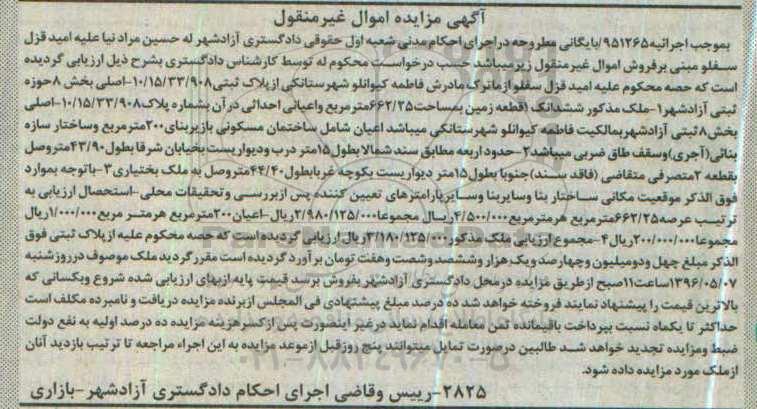 آگهی مزایده اموال غیرمنقول
بموجب اجرائیه ۹۵۱۲۶۵/بایگانی مطروحه دراجرای احکام مدنی شعبه اول حقوقی دادگستری آزادشهر له حسین مراد نیا علیه امید قزل
سفلو مبنی برفروش اموال غیرمنقول زیرمیباشد حسب درخواست محکوم له توسط کارشناس دادگستری بشرح ذیل ارزیابی گردیده
است که حصه محکوم علیه امید قزل سفلو ازماترک مادرش فاطمه کیوانلو شهرستانکی ازپلاک ثبتی ۱۰/۱۵/۳۳/۹۰۸-اصلی بخش ۸حوزه
ثبتی آزادشهر۱-ملک مذکور ششدانگ ۱قطعه زمین بمساحت۶۶۲/۲۵مترمربع واعیانی احداثی درآن بشماره پلاک۱۰/۱۵/۳۳/۹۰۸-اصلی
بخش۸ثبتی آزادشهربمالکیت فاطمه کیوانلو شهرستانکی میباشد اعیان شامل ساختمان مسکونی بازیربنای۲۰۰مترمربع وساختار سازه
بنائی(آجری)وسقف طاق ضربی میباشد۲-حدود اربعه مطابق سند شمالا بطول۱۵متر درب ودیواریست بخیابان شرقا بطول۴۳/۹۰متروصل
بقطعه ۲متصرفی متقاضی (فاقد سند)جنوبا بطول۱۵متر دیواریست بکوچه غربابطول۴۴/۴۰متروصل به ملک بختیاری۳-باتوجه بموارد
فوق الذکر موقعیت مکانی ساختار بنا وسایربنا وسایرپارامترهای تعیین کننده پس ازبررسی وتحقیقات محلی-استحصال ارزیابی به
ترتیب عرصه۶۶۲/۲۵مترمربع هرمترمربع۴/۵۰۰/۰۰۰ریال مجموعا۲/۹۸۰/۱۲۵/۰۰۰ریال-اعیان۲۰۰مترمربع هرمتر مربع۱/۰۰۰/۰۰۰ریال
مجموعا۲۰۰/۰۰۰/۰۰۰ریال۴-مجموع ارزیابی ملک مذکور۳/۱۸۰/۱۲۵/۰۰۰ریال ارزیابی گردیده است که حصه محکوم علیه ازپلاک ثبتی فوق
الذکر مبلغ چهل ودومیلیون وچهارصد ویک هزار وششصد وشصت وهفت تومان برآورد گردیده است مقررگردید ملک موصوف درروزشنبه
۱۳۹۶/۰۵/۰۷ساعت۱۱صبح ازطریق مزایده درمحل دادگستری آزادشهر بفروش برسد قیمت پایه ازبهای ارزیابی شده شروع وبکسانی که
بالاترین قیمت را پیشنهاد نمایند فروخته خواهد شد ده درصد مبلغ پیشنهادی فی المجلس ازبرنده مزایده دریافت و نامبرده مکلف است
حداکثر تا یکماه نسبت بپرداخت باقیمانده ثمن معامله اقدام نماید درغیر اینصورت پس ازکسرهزینه مزایده ده درصد اولیه به نفع دولت
ضبط ومزایده تجدید خواهد شد طالبین درصورت تمایل میتوانند پنج روزقبل ازموعد مزایده به این اجراء مراجعه تا ترتیب بازدید آنان
ازملک مورد مزایده داده شود.
۲۸۲۵-رییس وقاضی اجرای احکام دادگستری آزادشهر-بازاری